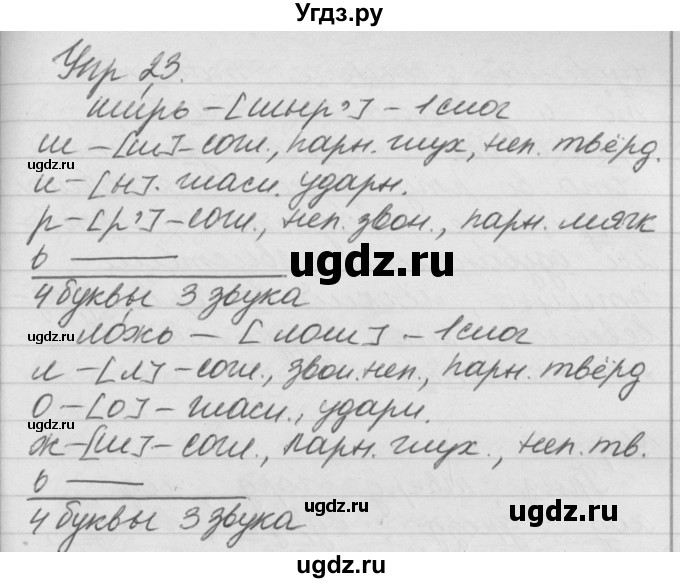 Угдз.ру
Упр 23.
ши́рь – [шыр’] – 1 слог
ш – [ш] – согл., парн. глух, неп. твёрд.
и – [ы]. гласн. ударн.
р – [р’] – согл., неп. звон., парн. мягк
ь ———
4 буквы 3 звука
ло́жь – [лош] – 1 слог
л – [л] – согл., звон. неп., парн. твёрд
о – [о] – гласн., ударн.
ж – [ш] – согл., парн. глух., неп. тв.
ь ———
4 буквы 3 звука
ugdz.ru
ugdz.ru
ugdz.ru
ugdz.ru
ugdz.ru
ugdz.ru
ugdz.ru
ugdz.ru
ugdz.ru